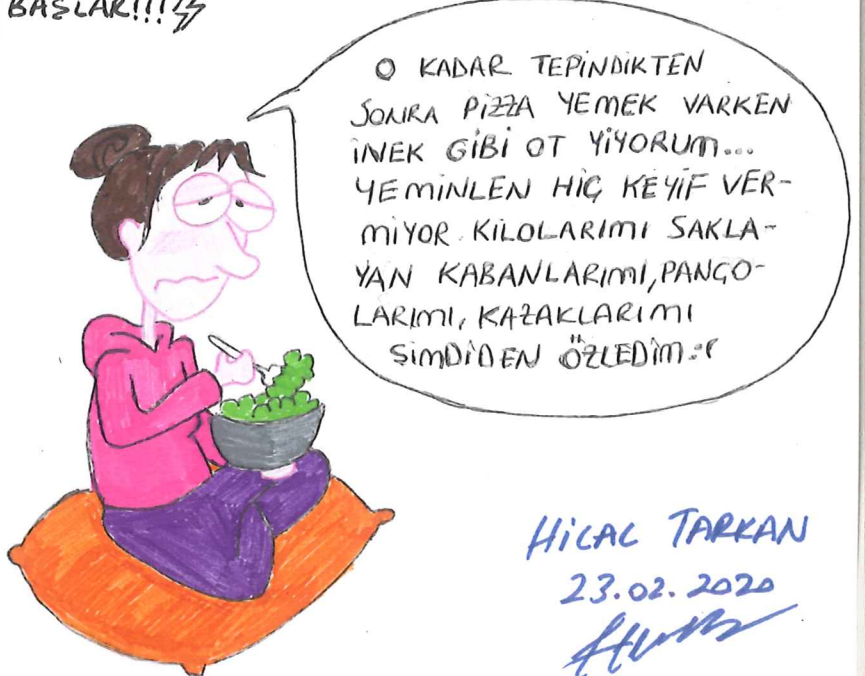 BAŞLAR!!!
O KADAR TEPİNDİKTEN
SONRA PİZZA YEMEK VARKEN
İNEK GİBİ OT YİYORUM...
YEMİNLEN HİÇ KEYİF VER-
MİYOR. KİLOLARIMI SAKLA-
YAN KABANLARIMI, PANÇO-
LARIMI, KAZAKLARIMI
ŞİMDİDEN ÖZLEDİM :(
HİLAL TARKAN
23.02.2020